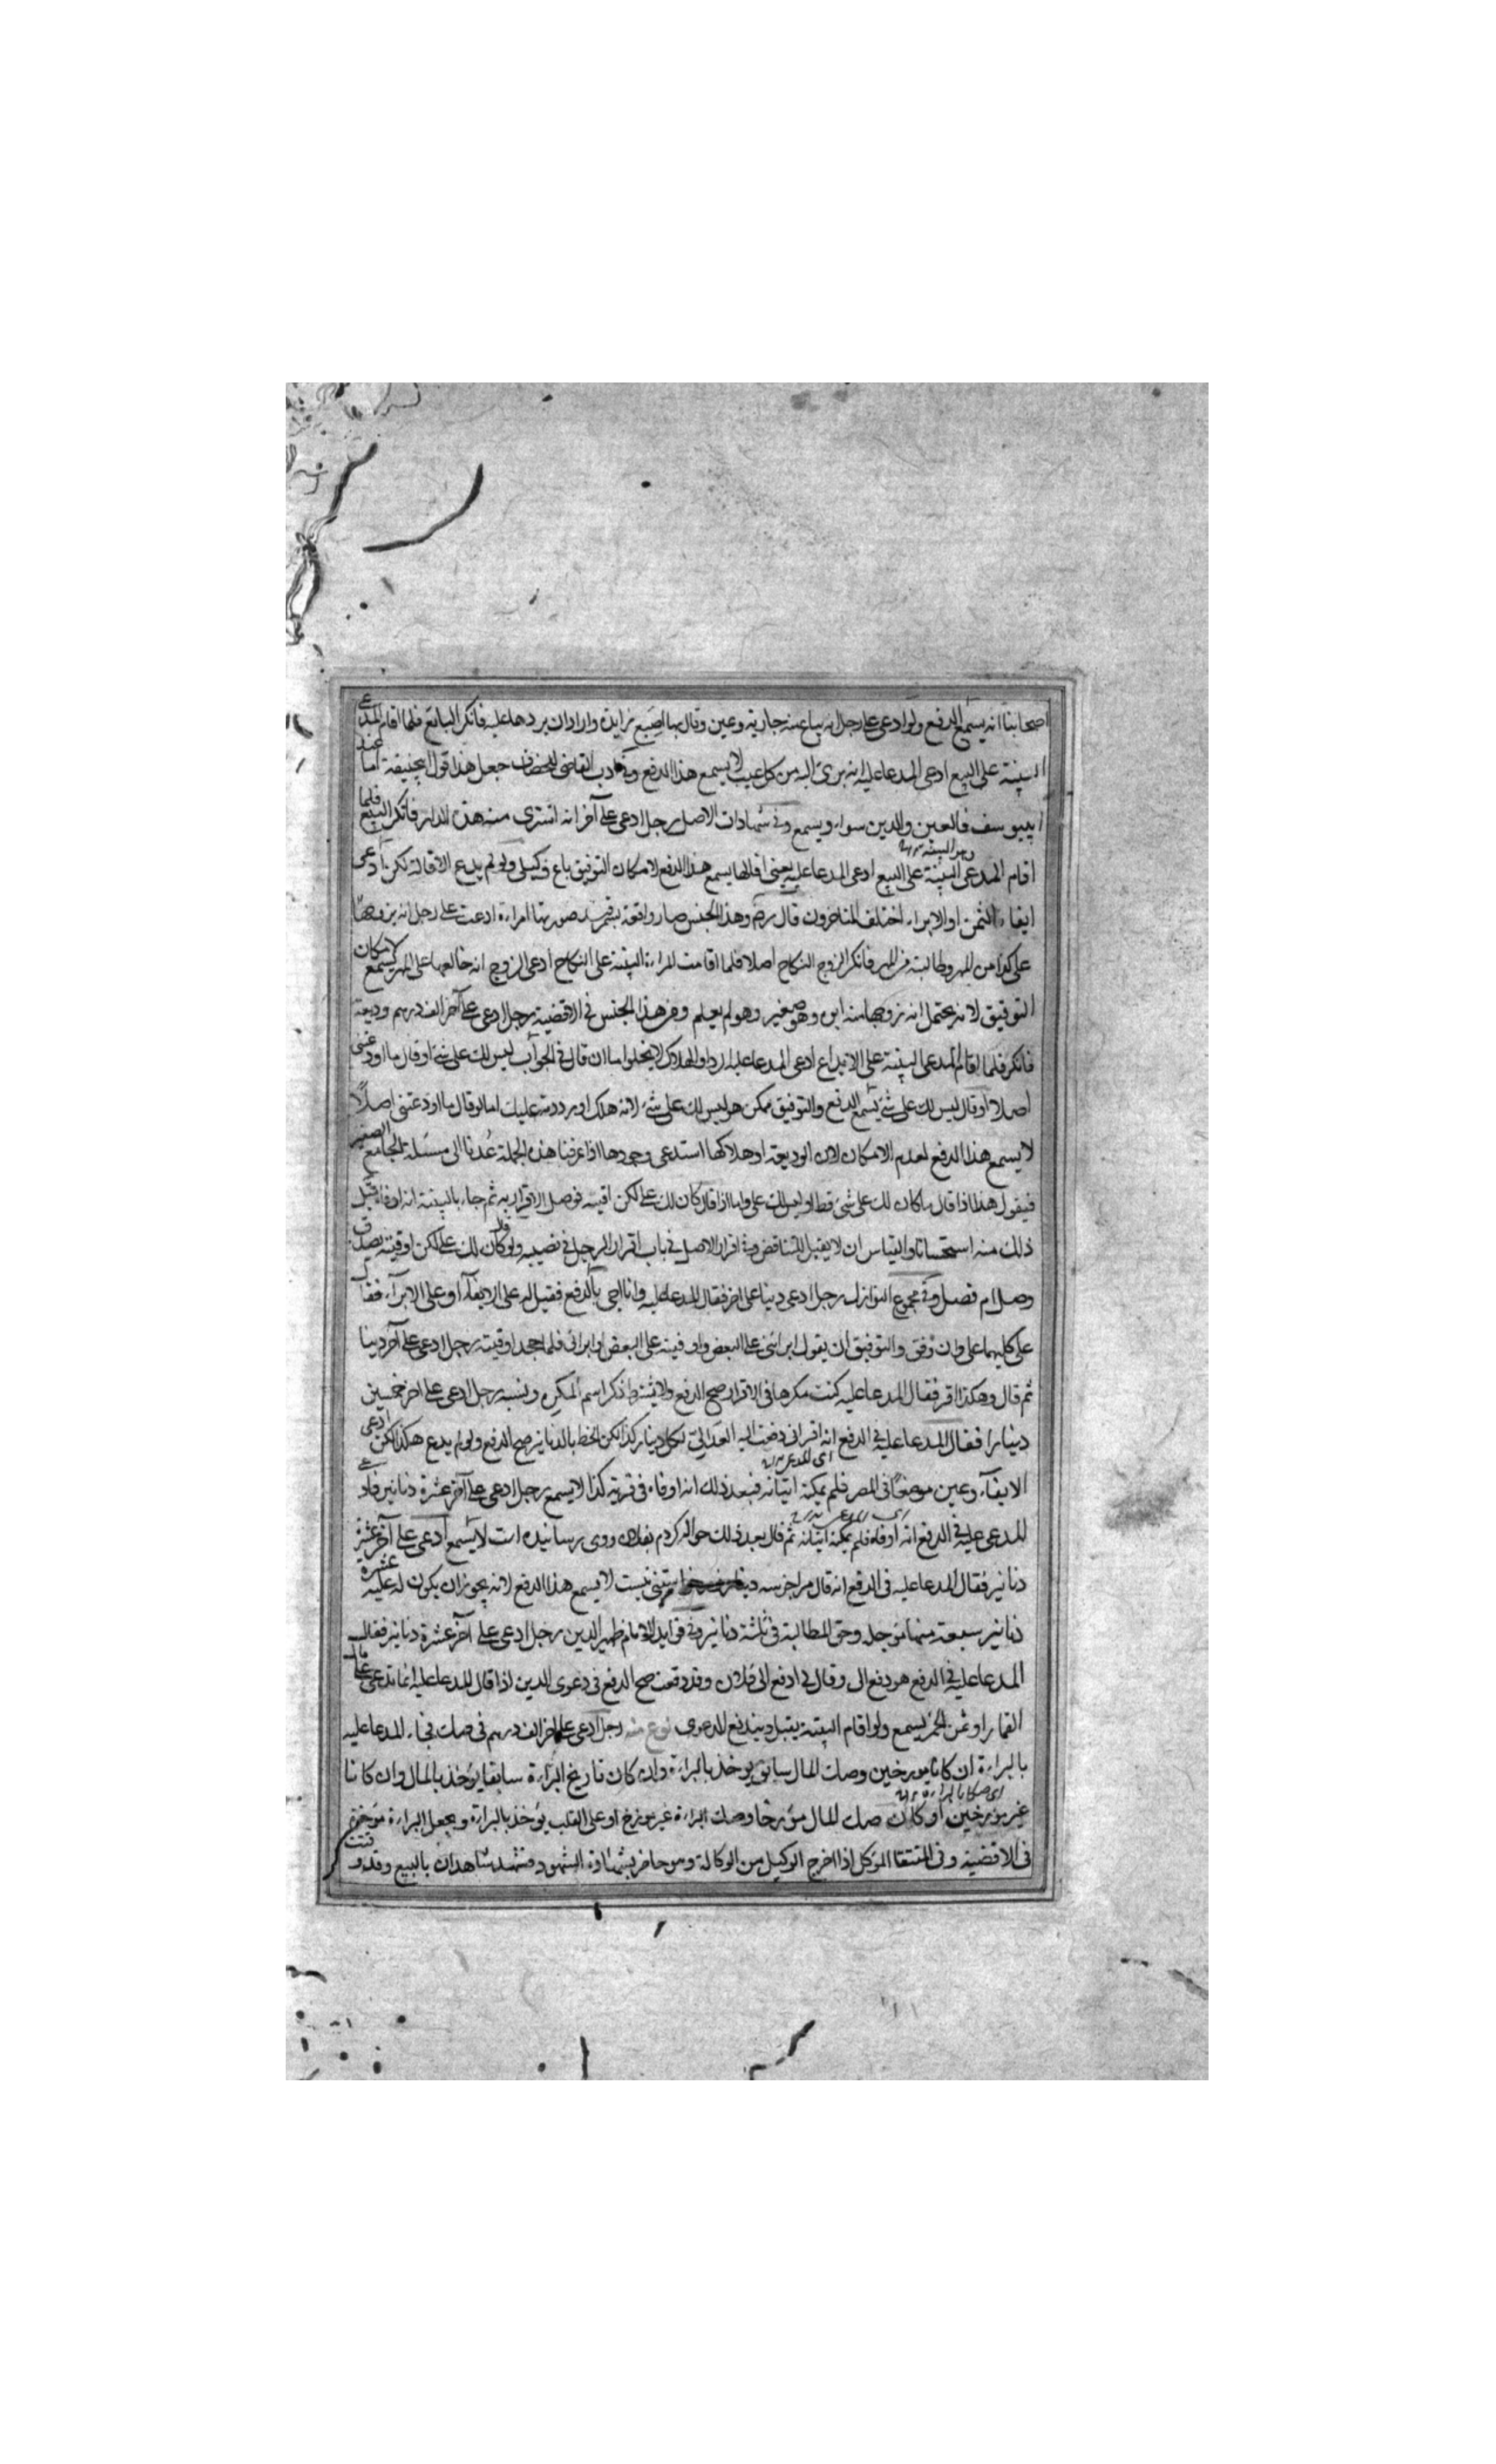 اصحابنا انه يسمع الدفع ولو ادعى على رجل انه باع منه جارية وعين وقال بها اصبع زايدة واراد ان يردها عليه فانكر البائع فلما اقام المدعى
البينة على البيع ادعى المدعا عليه انه برئ اليه من كل عيب لا يسمع هذا الدفع وفى ادب القاضى للخصاف جعل هذا قول ابيحنيفة اما عند
ابييوسف فالعين والدين سواء ويسمع وفى شهادات الاصل رجل ادعى على آخر انه اشترى منه هذه الدار فانكر البيع فلما
اقام المدعى البينة على البيع ادعى المدعا عليه يعنى اقالها يسمع هذا الدفع لامكان التوفيق باع وكيلى ولو لم يدع الاقالة لكن ادعى
ايفاء الثمن او الابراء اختلف المتاخرون قال رحم وهذا الجنس صار واقعة بسمرقند صورتها امراءة ادعت على رجل انه تزوجها
على كذا من المهر وطالبته من المهر فانكر الزوج النكاح اصلا فلما اقامت المراءة البينة على النكاح ادعى الزوج انه خالعها على المهر يسمع لامكان
التوفيق لانه يحتمل انه زوجها منه ابوه وهو صغير وهو لم يعلم ومن هذا الجنس فى الاقضية رجل ادعى على آخر الف درهم وديعة
فانكر فلما اقام المدعى البينة على الايداع ادعى المدعا عليه الرد او الهلاك لا يخلو اما ان قال فى الجواب ليس لك على شئ او قال ما اودعتنى
اصلا او قال ليس لك على شئ يسمع الدفع والتوفيق ممكن هو ليس لك على شئ لانه هلك او رددته عليك اما لو قال ما اودعتنى اصلاً
لا يسمع هذا الدفع لعدم الامكان لان الوديعة او هلاكها استدعى وجودها اذا عرفنا هذه الجملة عُدنا الى مسئلة الجامع الصغير
فيقول هذا اذا قال ما كان لك على شئ قط او ليس لك على واما اذا قال كان لك على لكن اقيته فوصل الاقرار به ثم جاء بالبينة انه اوفاه قبل
ذلك منه استحسانا والقياس ان لا يقبل للتناقض وفى اقرار الاصل فى باب اقرار الرجل فى نصيبه ولو قال كان لك على لكن اوفيته يصدق
وصل ام فصل وفى مجموع النوازل رجل ادعى دينا على اخر فقال المدعا عليه وانا اجى بالدفع فقيل له على الايفاء او على الابراء فقال
على كليهما على وان وفق والتوفيق ان يقول ابرائنى على البعض واوفيته على البعض او ابرائى فلما جحد اوفيته رجل ادعى على آخر دينا
ثم قال وهكذا اقر فقال المدعا عليه كنت مكرها فى الاقرار صح الدفع ولا يشترط ذكر اسم المكره ونسبه رجل ادعى على اخر خمسين
دينارا فقال المدعا عليه فى الدفع انه اقر انى دفعت اليه العدالى لكل دينار كذا لكن الخط بالدنانير صح الدفع ولو لم يدع هكذا لكن ادعى
الايفاء وعين موضعًا فى المصر فلم يمكنه اثباته فبعد ذلك انه اوفاه فى قرية كذا لا يسمع رجل ادعى على آخر عشرة دنانير فاد
المدعى عليه فى الدفع انه اوفاه فلم يمكنه اثباته ثم قال بعد ذلك حواله كردم بفلان ووى رسانيده است لا يسمع ادعى على آخر عشرة
دنانير فقال المدعا عليه فى الدفع انه قال مرا جز سه دينار خواستنى نيست لا يسمع هذا الدفع لانه يجوز ان يكون له عليه عشرة
دنانير سبعة منها مؤجلة وحق المطالبة فى ثلثة دنانير وفى فوايد الامام ظهير الدين رجل ادعى على آخر عشرة دنانير فقال
المدعا عليه فى الدفع هو دفع الى وقال لى ادفع الى فلان وقد دفعت صح الدفع فى دعوى الدين اذا قال المدعا عليه انما تدعى على مال
القمار او ثمن الخمر يسمع ولو اقام البينة يقبل ويندفع الدعوى نوع منه رجل ادعى على اخر الف درهم فى صك فجاء المدعا عليه
بالبراءة ان كانا مورخين وصك المال سابق يوخذ بالبراءة وان كان تاريخ البراءة سابقا يؤخذ بالمال وان كانا
اى صكا بالبراءة
غير مؤرخين او كان صك المال مؤرخا وصك البراءة غير مورخ او على القلب يؤخذ بالبراءة ويجعل البراءة مؤخرة
فى الاقضية وفى المنتقا الموكل اذا اخرج الوكيل من الوكالة وهو حاضر بشهادة الشهود فشهد شاهدان بالبيع وقد وقتت